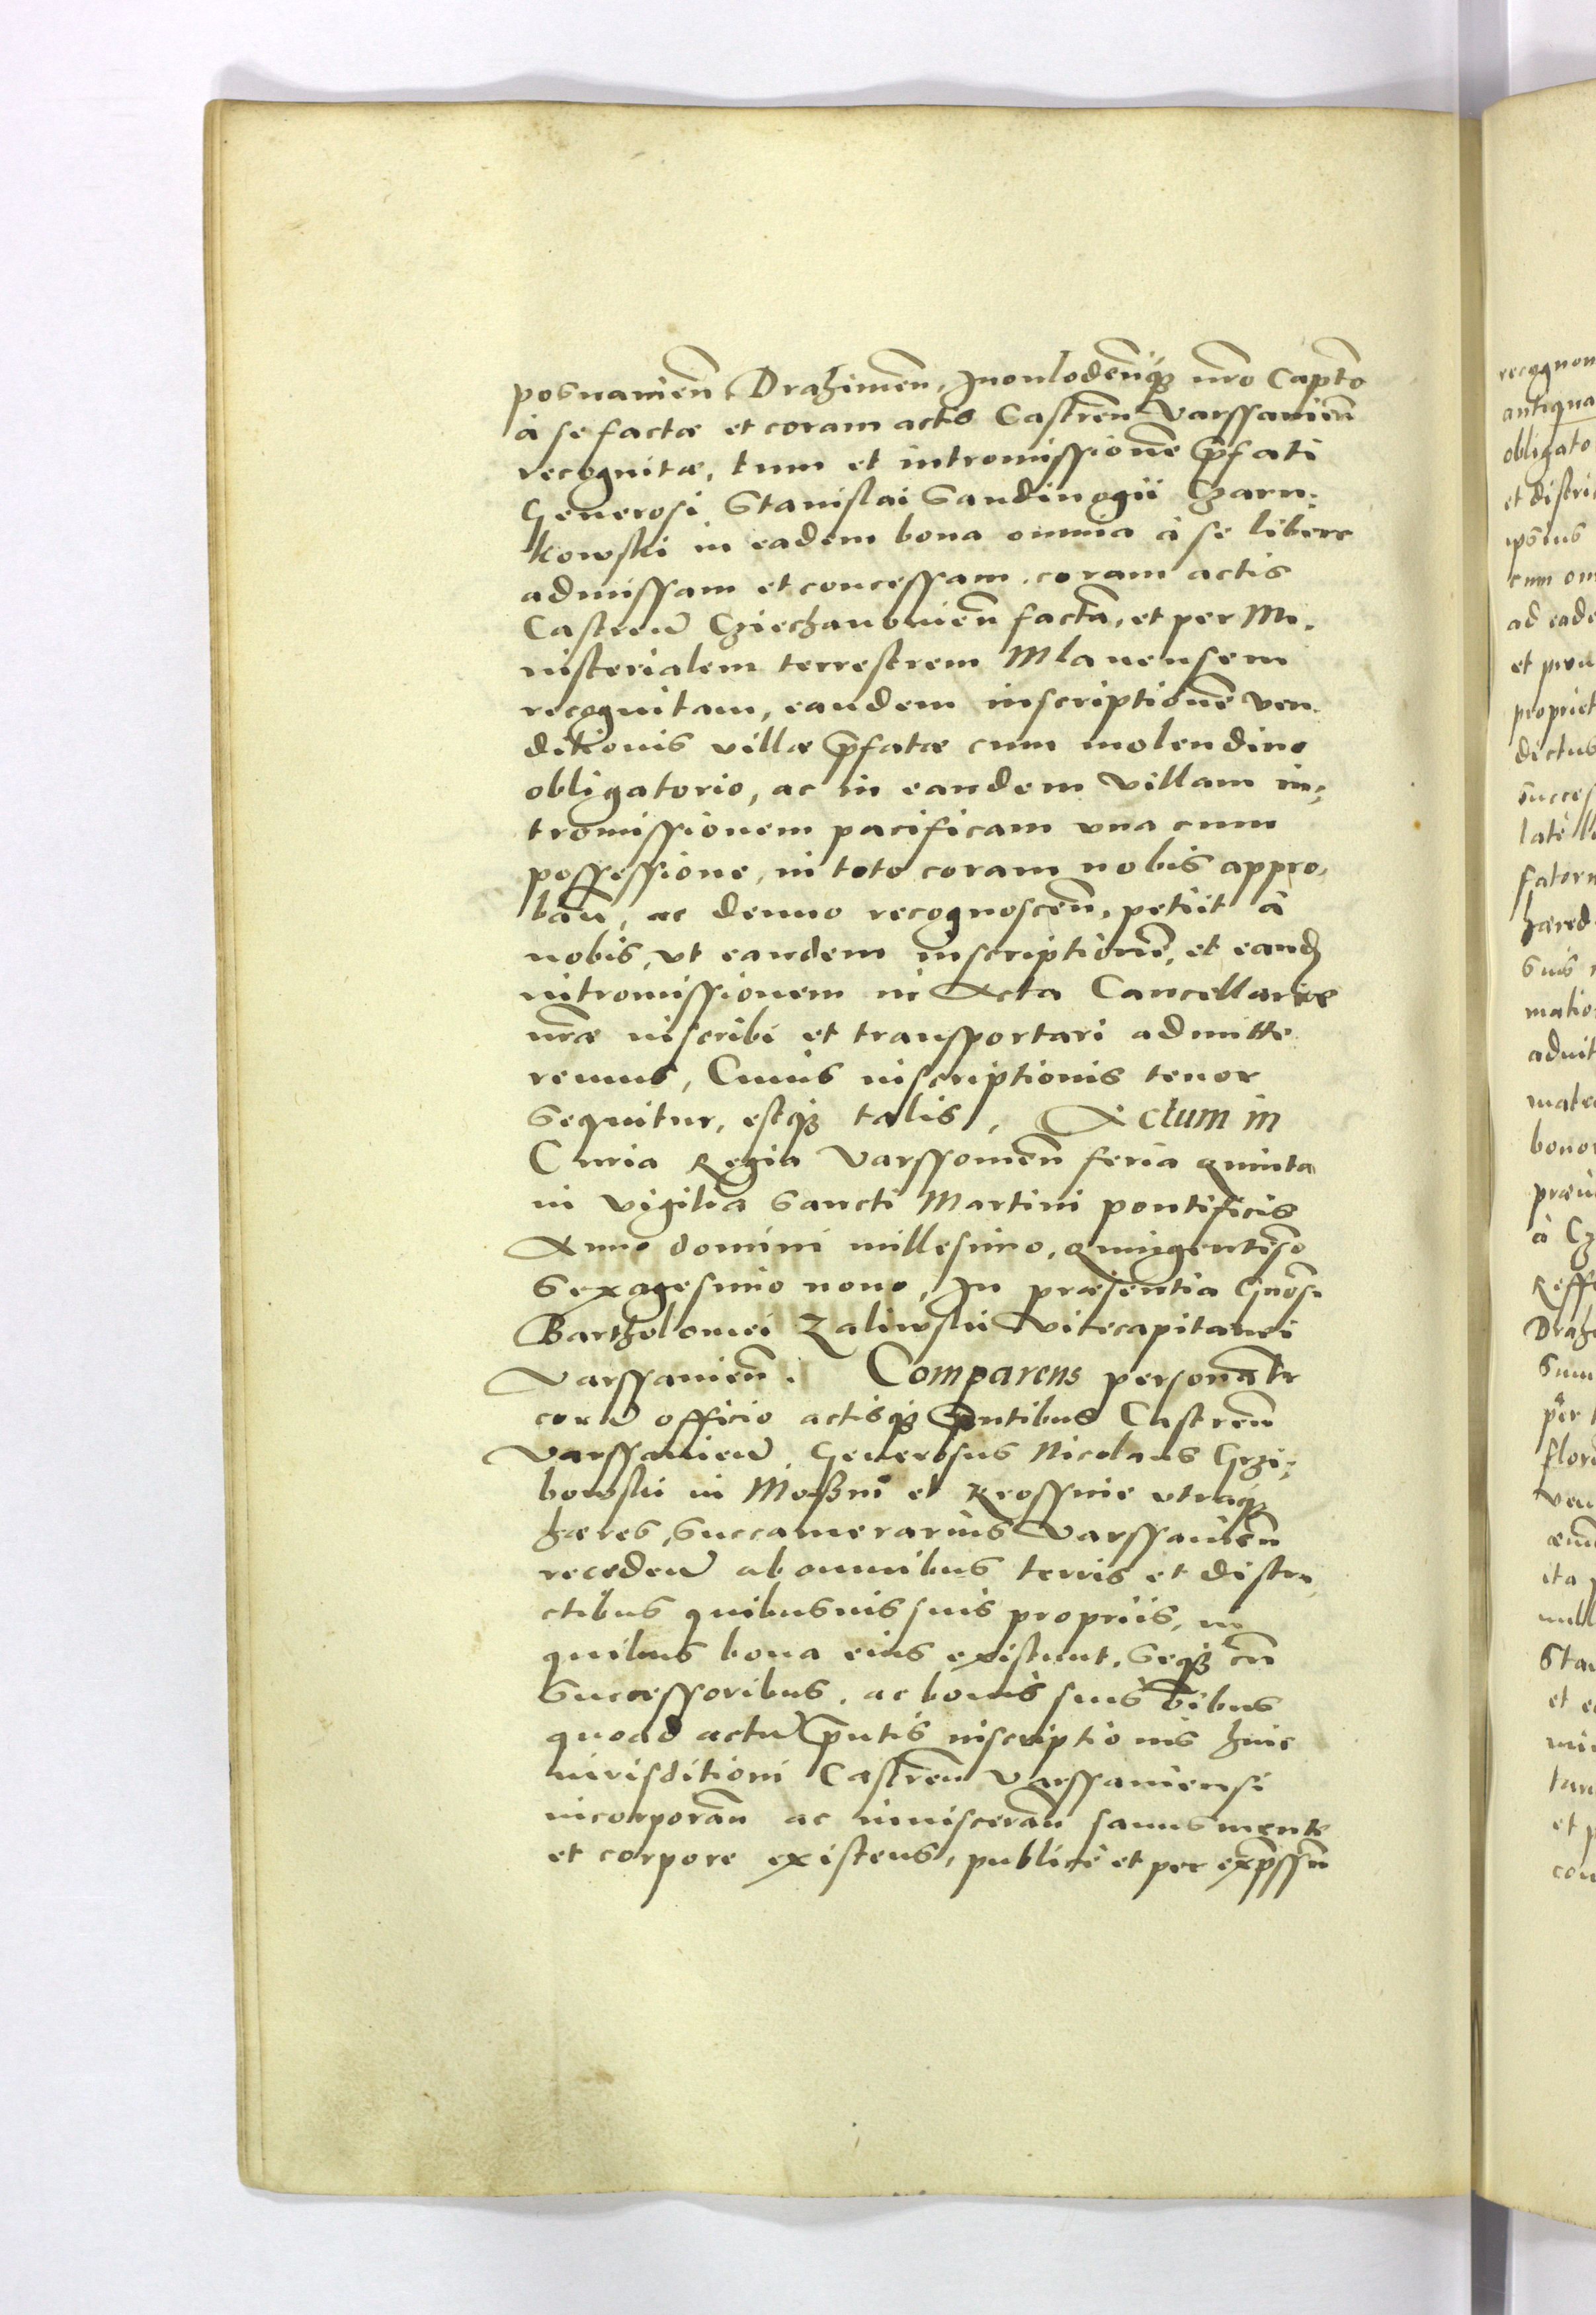 posnanien̄ Drahimen̄, Inowlodenq̄ꝫ nr̄o Capto
à se factæ et coram actis Castren̄ Varssauien̄
recognitæ, tum et intromissionē p̄fati
Generosi Stanislai Sandiuogii Czarn:
kowski in eadem bona omnia à se liberè
admissam et concessam. coram actis
Castren̄ Cziechanouien̄ factā, et per Mi.
nisterialem terrestrem Mlauensem
recognitam, eandem inscriptionē ven
ditionis villæ p̄fatæ cum molendino
obligatorio, ac in eandem villam in:
tromissionem pacificam vna cum
possessione, in toto coram nobis appro,
ban̄, ac denuo recognoscen̄, petiit à
nobis, vt eandem inscriptionē, et eand
intromissionem in Acta Cancellariæ
nr̄æ inscribi et transportari admitte
remus, Cuius inscriptionis tenor
sequitur, estqꝫ talis, Actum in
Curia Regia Varssouien̄ feria quinta
in vigilia sancti Martini pontificis
Anno domini millesimo, quingentēso
sexagesimo nono, In præsentia Gnōsi
Bartholomei Zaliwski Vicecapitanei
Varssauien̄. Comparens personalr
corā officio actisqꝫ p̄ntibus Castren̄
Varssauien̄, Generosus Nicolaus Grzi:
bowski in et utraqꝫ
hæres, Succamerarius Varssauien̄
receden̄ ab omnibus terris et distri,
ctibus quibusuis suis propriis, in
quibus bona eius existunt, seqꝫ cū
successoribus, ac bonis suis oībus
quoad actū p̄ntis inscriptionis huic
iurisditioni Castren̄ Varssauiensi
incorporan̄ ac inuisceran̄ sanus mente
et corpore existens, publicè et per exp̄ssū